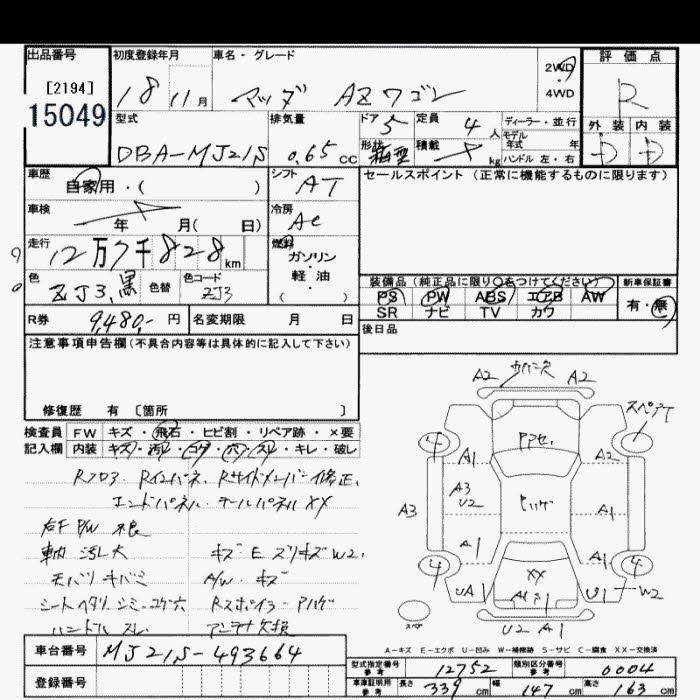 出品番号
[2194]
15049
初度登録年月
18 11月
車名・グレード
マツダ AZワゴン
2WD
4WD
評価点
R
外装 内装
D D
型式
DBA-MJ21S
排気量
0.65 cc
ドア 5
形状 箱型
定員 4 人
積載 kg
ディーラー・並行
モデル
年式 年
ハンドル 左・右
車歴
自家用・( )
シフト
AT
セールスポイント(正常に機能するものに限ります)
車検
年 月( 日)
冷房
AC
走行
12万7千828km
燃料
ガソリン
軽・油
( )
色
ZJ3,黒
色替
色コード
ZJ3
装備品(純正品に限り○をつけてください)
PS PW ABS エアB AW
SR ナビ TV カワ
新車保証書
有・無
R券 9,480,- 円
名変期限 月 日
後日品
注意事項申告欄(不具合内容等は具体的に記入して下さい)
修復歴 有〔箇所 〕
検査員
記入欄
FW キズ・飛石・ヒビ割・リペア跡・×要
内装 キズ・汚れ・コゲ・穴・スレ・キレ・破レ
Rフロア Rインパネ、Rサイドメンバー修正、
エンドパネル、テールパネルXX
右F P/W 不良
車内 汚レ大
キズ E スリキズ W2,
天バリ キバミ
A/W キズ
シートヘタリ シミ・コゲ穴
Rスポイラー ハゲ
ハンドル スレ
アンテナ欠損
A2 カバー欠 A2
スペアT
4 4
A1 A2
A3
A3
U2
A1
A1 A1
4 4
UA1
XX
U1 W2
U2 A1
スペア
A-キズ E-エクボ U-凹み W-補修跡 S-サビ C-腐食 XX-交換済
車台番号
MJ21S-493664
登録番号
型式指定番号
参考
12752
類別区分番号
参考
0004
車庫証明用
参考
長さ 339 cm
幅 147 cm
高さ 163 cm